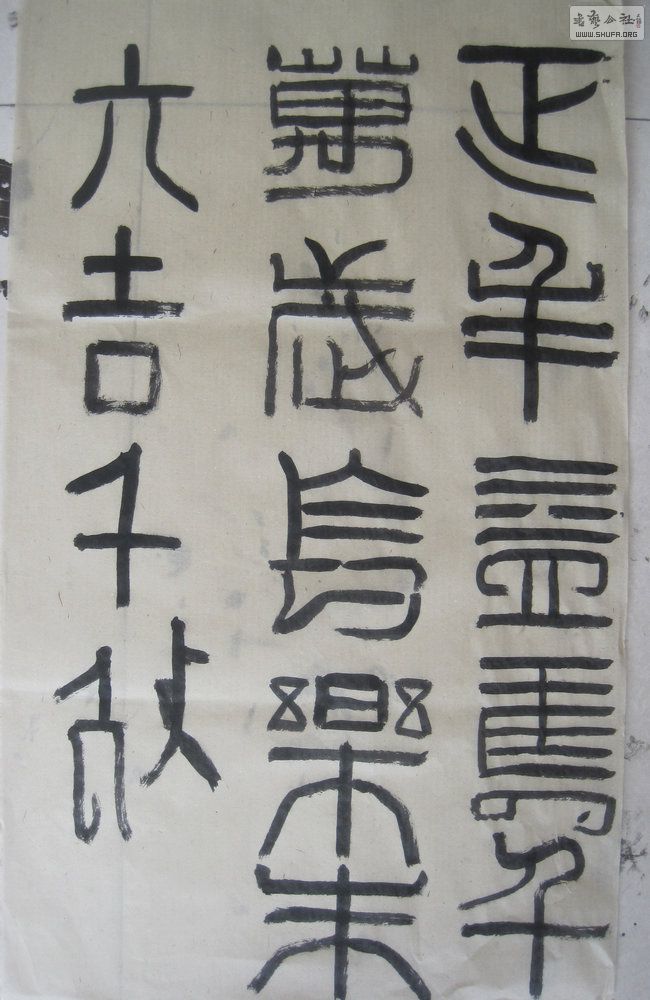 延年益壽
萬歲長樂未
吉千
書藝公社
WWW.SHUFA.ORG